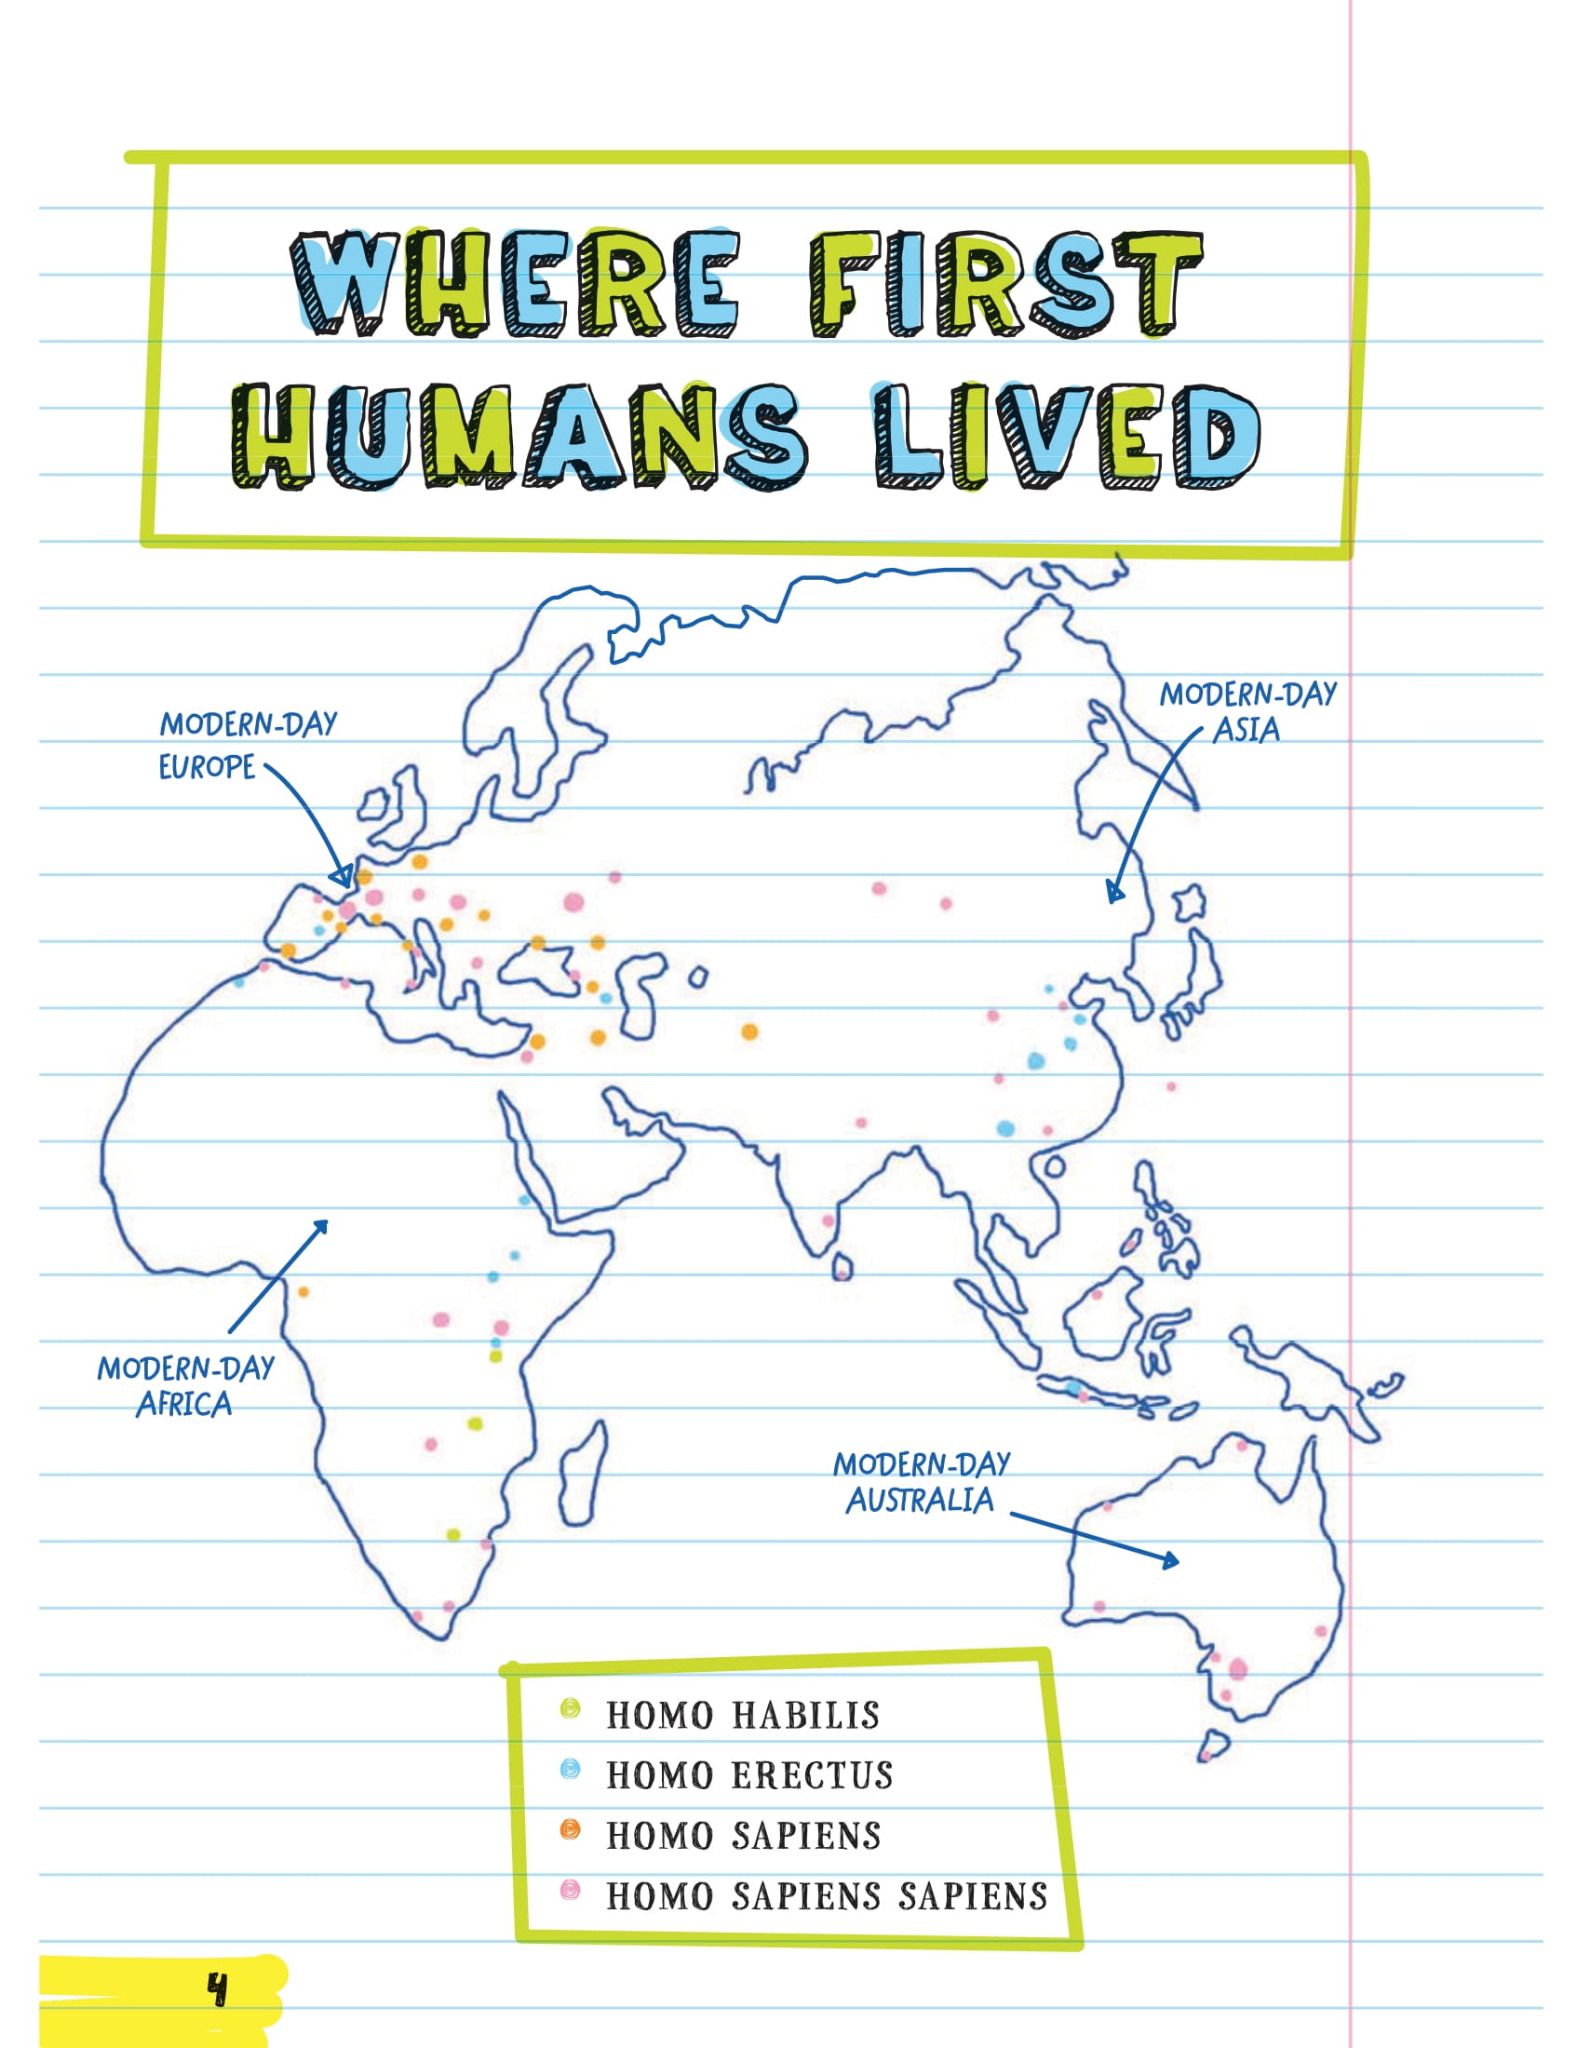 WHERE FIRST
HUMANS LIVED
MODERN-DAY
EUROPE
MODERN-DAY
ASIA
MODERN-DAY
AFRICA
MODERN-DAY
AUSTRALIA
HOMO HABILIS
HOMO ERECTUS
HOMO SAPIENS
HOMO SAPIENS SAPIENS
4